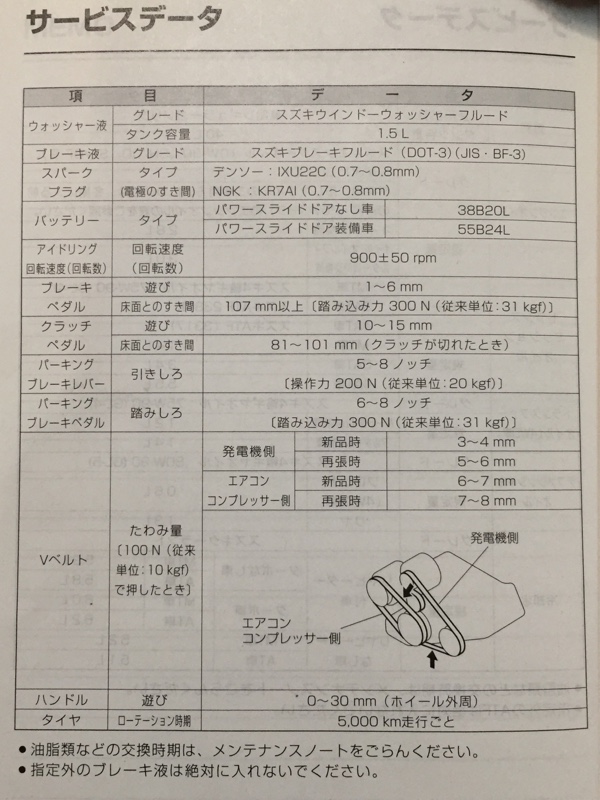 サービスデータ
項 目 デ ー タ
ウォッシャー液 グレード スズキウインドーウォッシャーフルード
タンク容量 1.5 L
ブレーキ液 グレード スズキブレーキフルード (DOT-3) (JIS・BF-3)
スパーク タイプ デンソー:IXU22C (0.7〜0.8mm)
プラグ (電極のすき間) NGK :KR7AI (0.7〜0.8mm)
バッテリー タイプ パワースライドドアなし車 38B20L
パワースライドドア装備車 55B24L
アイドリング 回転速度
回転速度(回転数) (回転数) 900±50 rpm
ブレーキ 遊び 1〜6 mm
ペダル 床面とのすき間 107 mm以上〔踏み込み力 300 N (従来単位:31 kgf)〕
クラッチ 遊び 10〜15 mm
ペダル 床面とのすき間 81〜101 mm (クラッチが切れたとき)
パーキング 引きしろ 5〜8 ノッチ
ブレーキレバー 〔操作力 200 N (従来単位:20 kgf)〕
パーキング 踏みしろ 6〜8 ノッチ
ブレーキペダル 〔踏み込み力 300 N (従来単位:31 kgf)〕
Vベルト
たわみ量
〔100 N (従来
単位:10 kgf)
で押したとき〕
発電機側 新品時 3〜4 mm
再張時 5〜6 mm
エアコン 新品時 6〜7 mm
コンプレッサー側 再張時 7〜8 mm
発電機側
エアコン
コンプレッサー側
ハンドル 遊び 0〜30 mm (ホイール外周)
タイヤ ローテーション時期 5,000 km走行ごと
● 油脂類などの交換時期は、メンテナンスノートをごらんください。
● 指定外のブレーキ液は絶対に入れないでください。